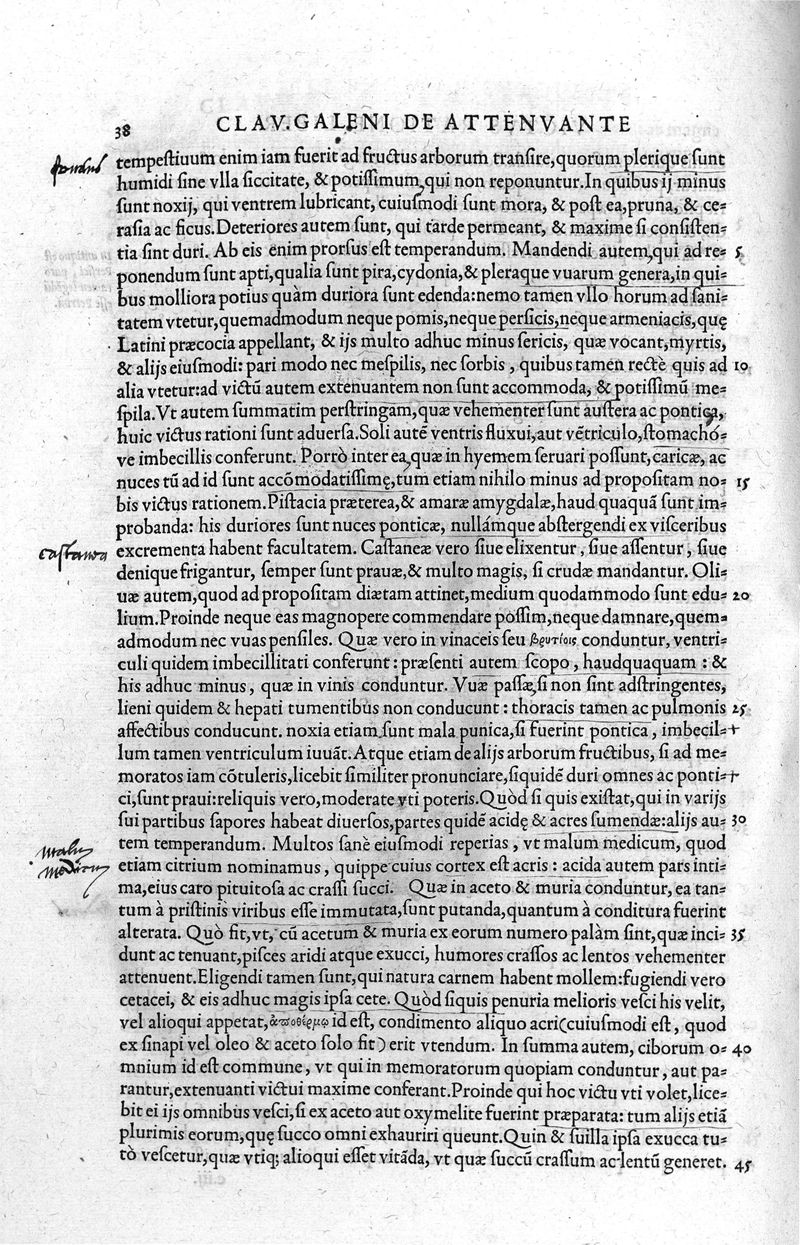 38 CLAV. GALENI DE ATTENVANTE
tempeſtiuum enim iam fuerit ad fructus arborum tranſire, quorum plerique ſunt
humidi ſine vlla ſiccitate, & potiſſimum, qui non reponuntur. In quibus ij minus
ſunt noxij, qui ventrem lubricant, cuiuſmodi ſunt mora, & poſt ea, pruna, & ce-
raſia ac ficus. Deteriores autem ſunt, qui tarde permeant, & maxime ſi conſiſten-
tia ſint duri. Ab eis enim prorſus eſt temperandum. Mandendi autem, qui ad re- 5
ponendum ſunt apti, qualia ſunt pira, cydonia, & pleraque vuarum genera, in qui-
bus molliora potius quàm duriora ſunt edenda: nemo tamen vllo horum ad ſani-
tatem vtetur, quemadmodum neque pomis, neque perſicis, neque armeniacis, quę
Latini præcocia appellant, & ijs multo adhuc minus ſericis, quæ vocant, myrtis,
& alijs eiuſmodi: pari modo nec meſpilis, nec ſorbis, quibus tamen rectè quis ad 10
alia vtetur: ad victū autem extenuantem non ſunt accommoda, & potiſſimū me-
ſpila. Vt autem ſummatim perſtringam, quæ vehementer ſunt auſtera ac pontica,
huic victus rationi ſunt aduerſa. Soli autē ventris fluxui, aut vētriculo, ſtomachó-
ve imbecillis conferunt. Porrò inter ea, quæ in hyemem ſeruari poſſunt, caricæ, ac
nuces tū ad id ſunt accōmodatiſſimę, tum etiam nihilo minus ad propoſitam no- 15
bis victus rationem. Piſtacia præterea, & amaræ amygdalæ, haud quaquā ſunt im-
probanda: his duriores ſunt nuces ponticæ, nullámque abſtergendi ex viſceribus
castanea
excrementa habent facultatem. Caſtaneæ vero ſiue elixentur, ſiue aſſentur, ſiue
denique frigantur, ſemper ſunt prauæ, & multo magis, ſi crudæ mandantur. Oli-
uæ autem, quod ad propoſitam diætam attinet, medium quodammodo ſunt edu- 20
lium. Proinde neque eas magnopere commendare poſſim, neque damnare, quem-
admodum nec vuas penſiles. Quæ vero in vinaceis ſeu βρυτίοις conduntur, ventri-
culi quidem imbecillitati conferunt: præſenti autem ſcopo, haudquaquam: &
his adhuc minus, quæ in vinis conduntur. Vuæ paſſæ, ſi non ſint adſtringentes,
lieni quidem & hepati tumentibus non conducunt: thoracis tamen ac pulmonis 25
affectibus conducunt. noxia etiam ſunt mala punica, ſi fuerint pontica, imbecil- +
lum tamen ventriculum iuuāt. Atque etiam de alijs arborum fructibus, ſi ad me-
moratos iam cōtuleris, licebit ſimiliter pronunciare, ſiquidē duri omnes ac ponti- +
ci, ſunt praui: reliquis vero, moderate vti poteris. Quòd ſi quis exiſtat, qui in varijs
ſui partibus ſapores habeat diuerſos, partes quidē acidę & acres ſumendæ: alijs au- 30
malum
medicum
tem temperandum. Multos ſanè eiuſmodi reperias, vt malum medicum, quod
etiam citrium nominamus, quippe cuius cortex eſt acris: acida autem pars inti-
ma, eius caro pituitoſa ac craſſi ſucci. Quæ in aceto & muria conduntur, ea tan-
tum à priſtinis viribus eſſe immutata, ſunt putanda, quantum à conditura fuerint
alterata. Quò fit, vt, cū acetum & muria ex eorum numero palàm ſint, quæ inci- 35
dunt ac tenuant, piſces aridi atque exucci, humores craſſos ac lentos vehementer
attenuent. Eligendi tamen ſunt, qui natura carnem habent mollem: fugiendi vero
cetacei, & eis adhuc magis ipſa cete. Quòd ſiquis penuria melioris veſci his velit,
vel alioqui appetat, ἀποθέρμῳ id eſt, condimento aliquo acri (cuiuſmodi eſt, quod
ex ſinapi vel oleo & aceto ſolo fit) erit vtendum. In ſumma autem, ciborum o- 40
mnium id eſt commune, vt qui in memoratorum quopiam conduntur, aut pa-
rantur, extenuanti victui maxime conferant. Proinde qui hoc victu vti volet, lice-
bit ei ijs omnibus veſci, ſi ex aceto aut oxymelite fuerint præparata: tum alijs etiā
plurimis eorum, quę ſucco omni exhauriri queunt. Quin & ſuilla ipſa exucca tu-
tò veſcetur, quæ vtiq; alioqui eſſet vitāda, vt quæ ſuccū craſſum ac lentū generet. 45